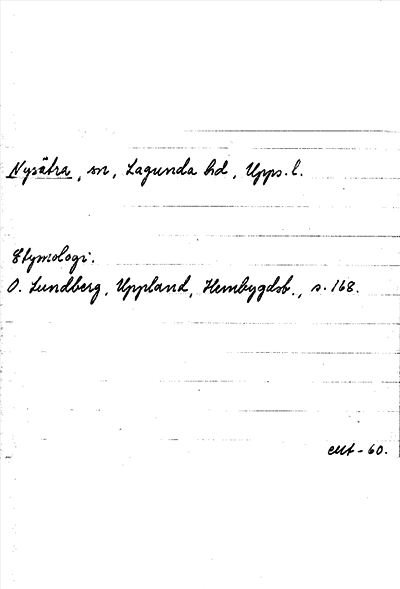 Nysätra, sn, Lagunda hd, Upps. l.
Etymologi.
O. Lundberg, Uppland, Hembygdsb., s. 168.
-60.